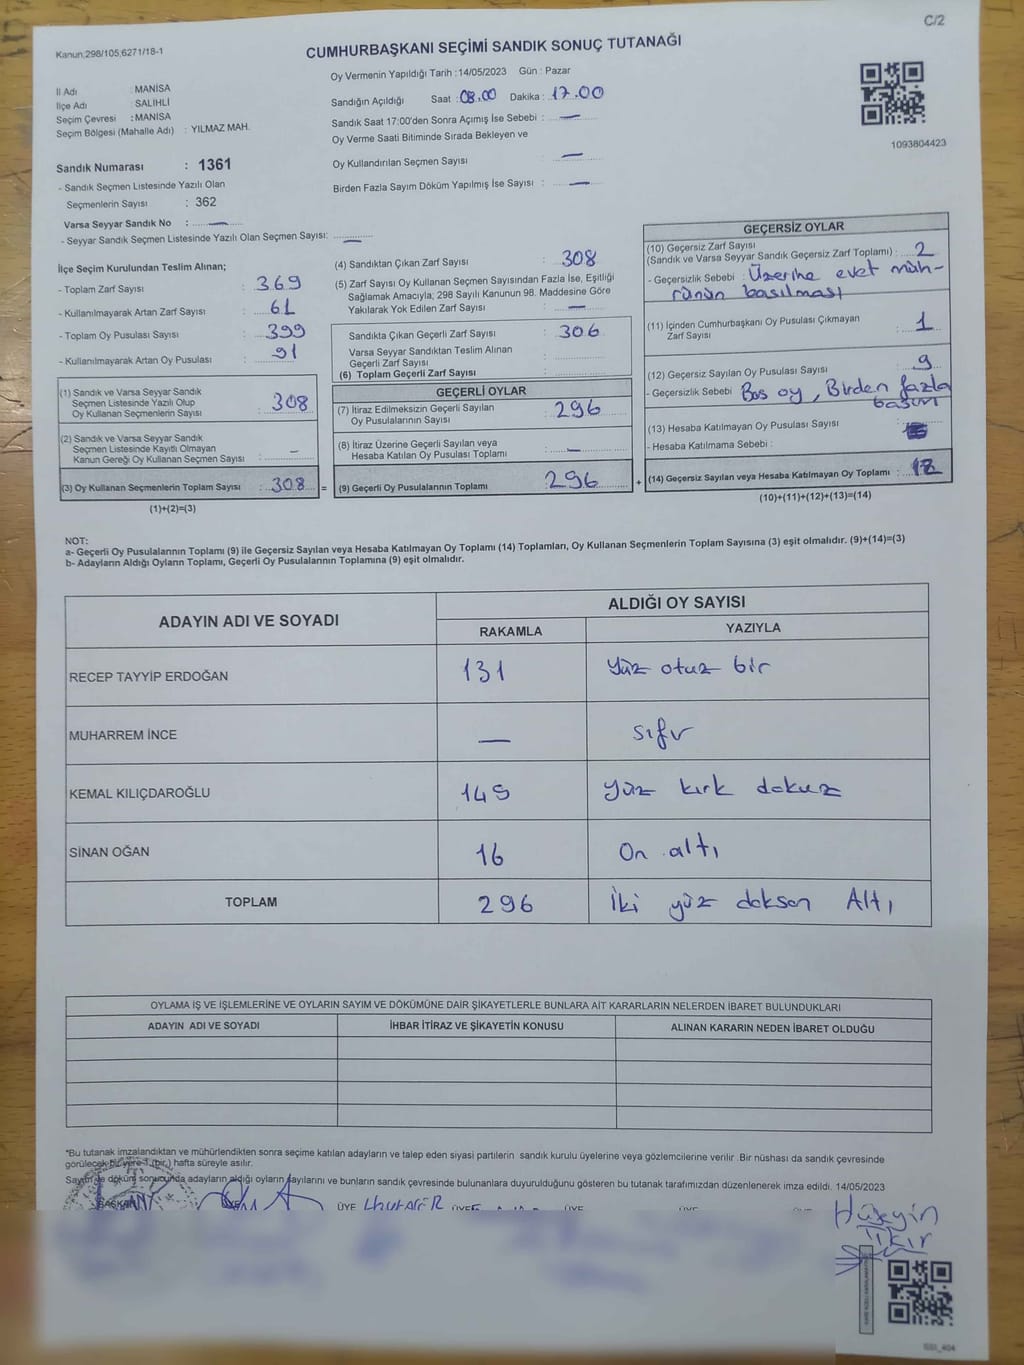 C/2
Kanun:298/105,6271/18-1
CUMHURBAŞKANI SEÇİMİ SANDIK SONUÇ TUTANAĞI
Oy Vermenin Yapıldığı Tarih :14/05/2023 Gün : Pazar
İl Adı : MANİSA
İlçe Adı : SALİHLİ
Seçim Çevresi : MANİSA
Seçim Bölgesi (Mahalle Adı) : YILMAZ MAH.
Sandığın Açıldığı Saat : 08.00 Dakika : 17.00
Sandık Saat 17:00'den Sonra Açılmış İse Sebebi : —
Oy Verme Saati Bitiminde Sırada Bekleyen ve
Oy Kullandırılan Seçmen Sayısı : —
Birden Fazla Sayım Döküm Yapılmış İse Sayısı : —
1093804423
Sandık Numarası : 1361
- Sandık Seçmen Listesinde Yazılı Olan
Seçmenlerin Sayısı : 362
Varsa Seyyar Sandık No : —
- Seyyar Sandık Seçmen Listesinde Yazılı Olan Seçmen Sayısı: —
İlçe Seçim Kurulundan Teslim Alınan;
- Toplam Zarf Sayısı : 369
- Kullanılmayarak Artan Zarf Sayısı : 61
- Toplam Oy Pusulası Sayısı : 399
- Kullanılmayarak Artan Oy Pusulası : 91
(1) Sandık ve Varsa Seyyar Sandık
Seçmen Listesinde Yazılı Olup
Oy Kullanan Seçmenlerin Sayısı : 308
(2) Sandık ve Varsa Seyyar Sandık
Seçmen Listesinde Kayıtlı Olmayan
Kanun Gereği Oy Kullanan Seçmen Sayısı : —
(3) Oy Kullanan Seçmenlerin Toplam Sayısı : 308 =
(1)+(2)=(3)
(4) Sandıktan Çıkan Zarf Sayısı : 308
(5) Zarf Sayısı Oy Kullanan Seçmen Sayısından Fazla İse, Eşitliği
Sağlamak Amacıyla; 298 Sayılı Kanunun 98. Maddesine Göre
Yakılarak Yok Edilen Zarf Sayısı : —
Sandıkta Çıkan Geçerli Zarf Sayısı : 306
Varsa Seyyar Sandıktan Teslim Alınan
Geçerli Zarf Sayısı :
(6) Toplam Geçerli Zarf Sayısı :
GEÇERLİ OYLAR
(7) İtiraz Edilmeksizin Geçerli Sayılan
Oy Pusulasının Sayısı : 296
(8) İtiraz Üzerine Geçerli Sayılan veya
Hesaba Katılan Oy Pusulası Toplamı : —
(9) Geçerli Oy Pusulalarının Toplamı : 296 +
GEÇERSİZ OYLAR
(10) Geçersiz Zarf Sayısı
(Sandık ve Varsa Seyyar Sandık Geçersiz Zarf Toplamı) : 2
- Geçersizlik Sebebi : Üzerine evet müh-
rünün basılması
(11) İçinden Cumhurbaşkanı Oy Pusulası Çıkmayan
Zarf Sayısı : 1
(12) Geçersiz Sayılan Oy Pusulası Sayısı : 9
- Geçersizlik Sebebi Bos oy, Birden fazla
basım
(13) Hesaba Katılmayan Oy Pusulası Sayısı :
- Hesaba Katılmama Sebebi :
(14) Geçersiz Sayılan veya Hesaba Katılmayan Oy Toplamı : 12
(10)+(11)+(12)+(13)=(14)
NOT:
a- Geçerli Oy Pusulalarının Toplamı (9) ile Geçersiz Sayılan veya Hesaba Katılmayan Oy Toplamı (14) Toplamları, Oy Kullanan Seçmenlerin Toplam Sayısına (3) eşit olmalıdır. (9)+(14)=(3)
b- Adayların Aldığı Oyların Toplamı, Geçerli Oy Pusulalarının Toplamına (9) eşit olmalıdır.
ADAYIN ADI VE SOYADI
ALDIĞI OY SAYISI
RAKAMLA YAZIYLA
RECEP TAYYİP ERDOĞAN 131 yüz otuz bir
MUHARREM İNCE — sıfır
KEMAL KILIÇDAROĞLU 149 yüz kırk dokuz
SİNAN OĞAN 16 On altı
TOPLAM 296 İki yüz doksan Altı
OYLAMA İŞ VE İŞLEMLERİNE VE OYLARIN SAYIM VE DÖKÜMÜNE DAİR ŞİKAYETLERLE BUNLARA AİT KARARLARIN NELERDEN İBARET BULUNDUKLARI
ADAYIN ADI VE SOYADI İHBAR İTİRAZ VE ŞİKAYETİN KONUSU ALINAN KARARIN NEDEN İBARET OLDUĞU
*Bu tutanak imzalandıktan ve mühürlendikten sonra seçime katılan adayların ve talep eden siyasi partilerin sandık kurulu üyelerine veya gözlemcilerine verilir .Bir nüshası da sandık çevresinde
görülecek bir yere 1 (bir) hafta süreyle asılır.
Sayım ve döküm sonucunda adayların aldığı oyların sayılarını ve bunların sandık çevresinde bulunanlara duyurulduğunu gösteren bu tutanak tarafımızdan düzenlenerek imza edildi. 14/05/2023
BAŞKAN ÜYE ÜYE ÜYE ÜYE ÜYE
Hüseyin